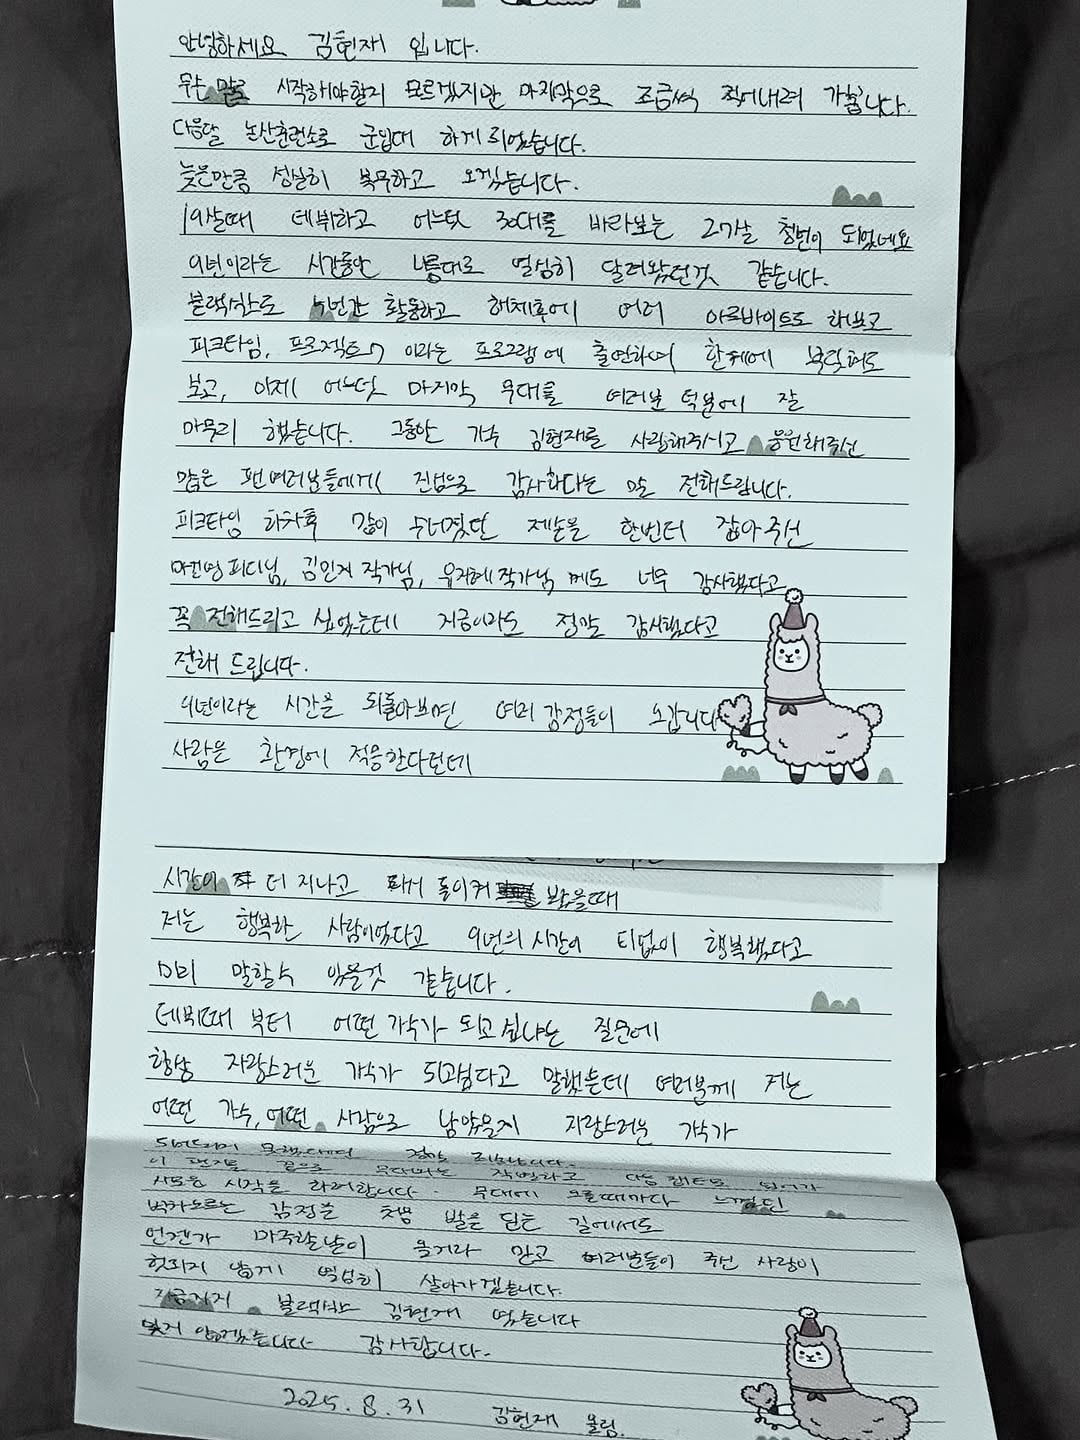 안녕하세요 김현재 입니다.
무슨 말로 시작해야할지 모르겠지만 마지막으로 조금씩 적어내려 가봅니다.
다음달 논산훈련소로 군입대 하게 되었습니다.
늦은만큼 성실히 복무하고 오겠습니다.
19살때 데뷔하고 어느덧 30대를 바라보는 27살 청년이 되었네요
9년이라는 시간동안 나름대로 열심히 달려왔던것 같습니다.
블랙식스로 수년간 활동하고 해체후에 여러 아르바이트도 해보고
피크타임, 프로젝트7 이라는 프로그램에 출연하여 한계에 부딪혀도
보고, 이제 어느덧 마지막 무대를 여러분 덕분에 잘
마무리 했습니다. 그동안 가수 김현재를 사랑해주시고 응원해주신
많은 팬여러분들에게 진심으로 감사하다는 말 전해드립니다.
피크타임 하차후 많이 무너졌던 제손을 한번더 잡아주신
마건영 피디님, 김민지 작가님, 유지혜 작가님 께도 너무 감사했다고
꼭 전해드리고 싶었는데 지금이라도 정말 감사했다고
전해 드립니다.
9년이라는 시간을 되돌아보면 여러 감정들이 오갑니다
사람은 환경에 적응한다던데
시간이 좀 더 지나고 과거 돌이켜 봤을때
저는 행복한 사람이었다고 9년의 시간이 티없이 행복했다고
말할수 있을것 같습니다.
데뷔때 부터 어떤 가수가 되고싶냐는 질문에
항상 자랑스러운 가수가 되고싶다고 말했는데 여러분께 저는
어떤 가수, 어떤 사람으로 남았을지 자랑스러운 가수가
되어드리지 못했다면 정말 죄송합니다.
이 편지를 끝으로 무대와는 작별하고 다음 챕터로 넘어가
새로운 시작을 하려합니다. 무대에 오를때마다 느꼈던
벅차오르는 감정을 첫발 발을 딛는 길에서도
언젠가 마주할날이 올거라 믿고 여러분들이 주신 사랑이
헛되지 않게 열심히 살아가겠습니다.
지금까지 블랙식스 김현재 였습니다
잊지 않겠습니다 감사합니다.
2025. 8. 31 김현재 올림.